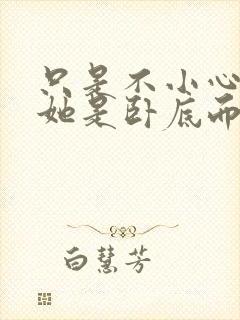 只是不小心
她是卧底而
白慧芳